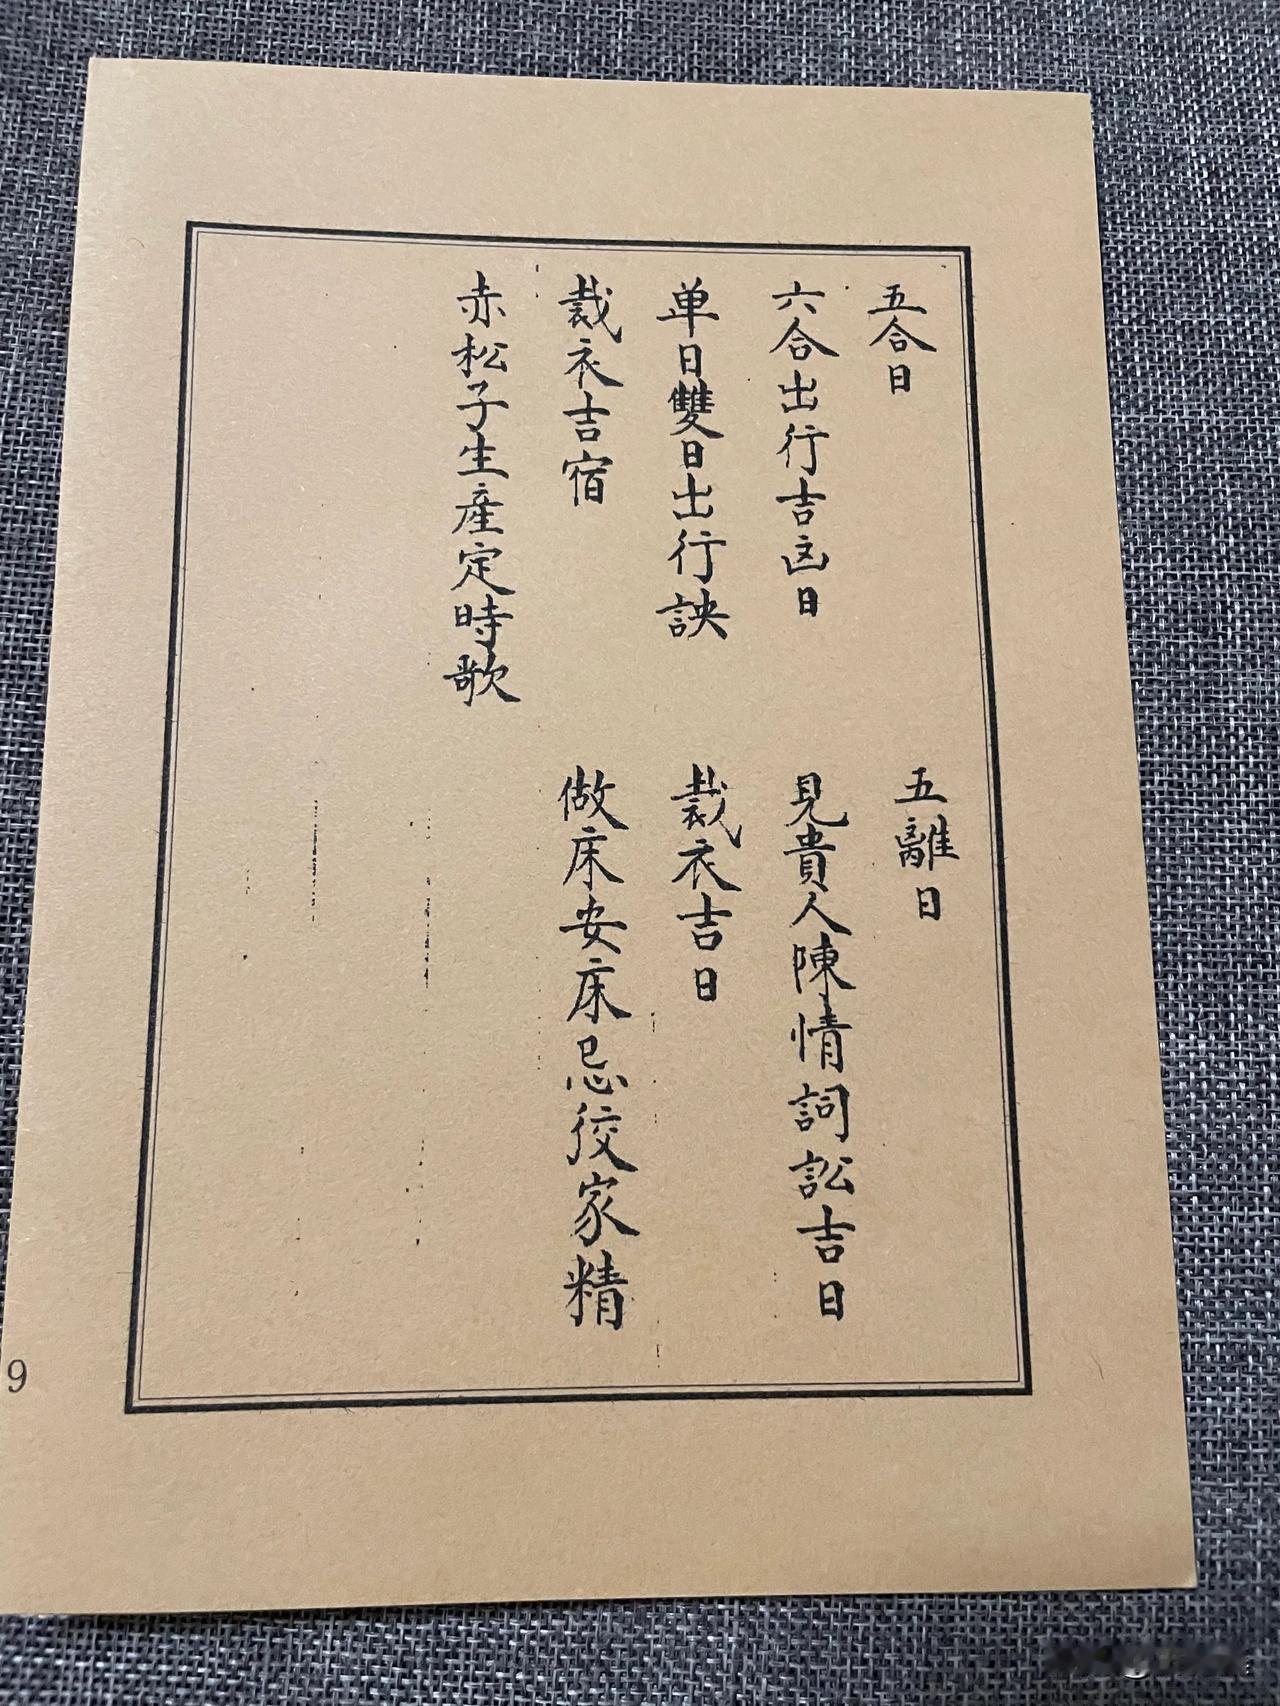 五合日　五離日
六合出行吉凶日　見貴人陳情詞訟吉日
单日雙日出行訣　裁衣吉日
裁衣吉宿　做床安床忌家精
赤松子生產定時歌
9